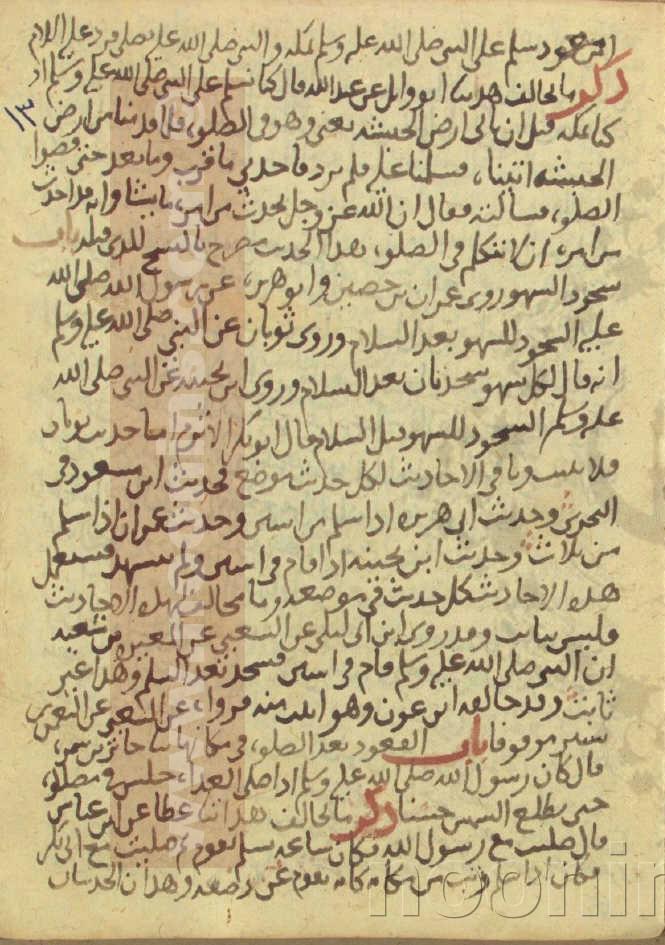 ابن مسعود سلم على النبي صلى الله عليه وسلم بمكة والنبي صلى الله عليه يصلي فرد عليه السلام
ذكر ما يخالف هذا ابو وائل عن عبد الله قال كنا نسلم على النبي صلى الله عليه وسلم اذ
كنا بمكة قبل ان ناتي ارض الحبشة يعني وهو في الصلوة فلما قدمنا من ارض
١٣
الحبشة اتيناه فسلمنا عليه فلم يرد فاخذني ما قرب وما بعد حتى قضوا
الصلوة فسالته فقال ان الله عز وجل يحدث من امره ما يشا وانه قد احدث
من امره ان لا نتكلم في الصلوة هذا الحديث مصرح بالنسخ للذي قبله باب
سجود السهو روى عمران بن حصين وابو هريرة عن رسول الله صلى الله
عليه السجود للسهو بعد السلام وروى ثوبان عن النبي صلى الله عليه وسلم
انه قال لكل سهو سجدتان بعد السلام وروى ابن بحينة عن النبي صلى الله
عليه وسلم السجود للسهو قبل السلام قال ابو بكر الاثرم اما حديث ثوبان
فلا يثبت وباقي الاحاديث لكل حديث موضع فحديث ابن مسعود في
التحري وحديث ابي هريرة اذا سلم من اثنين وحديث عمران اذا سلم
من ثلاث وحديث ابن بحينة اذا قام في اثنين ولم يتشهد فنستعمل
هذه الاحاديث كل حديث في موضعه وما يخالف هذه الاحاديث
فليس بثابت وقد روى ابن ابي ليلى عن الشعبي عن المغيرة بن شعبة
ان النبي صلى الله عليه وسلم قام في اثنين فسجد بعد السلم وهذا غير
ثابت وقد خالفه ابن عون وهو اثبت منه فرواه عن الشعبي عن المغيرة
موقوفا باب القعود بعد الصلوة في مكانها جابر بن سمرة
قال كان رسول الله صلى الله عليه وسلم اذا صلى الغداة جلس في مصلاه
حتى تطلع الشمس حسنا ذكر ما يخالف هذا عطا عن ابن عباس
قال صليت مع رسول الله فكان ساعة يسلم يقوم ثم صليت مع ابي بكر
فكان اذا سلم وثب من مكانه كانه يقوم عن رضفة وهذان الحديثان
noorlir